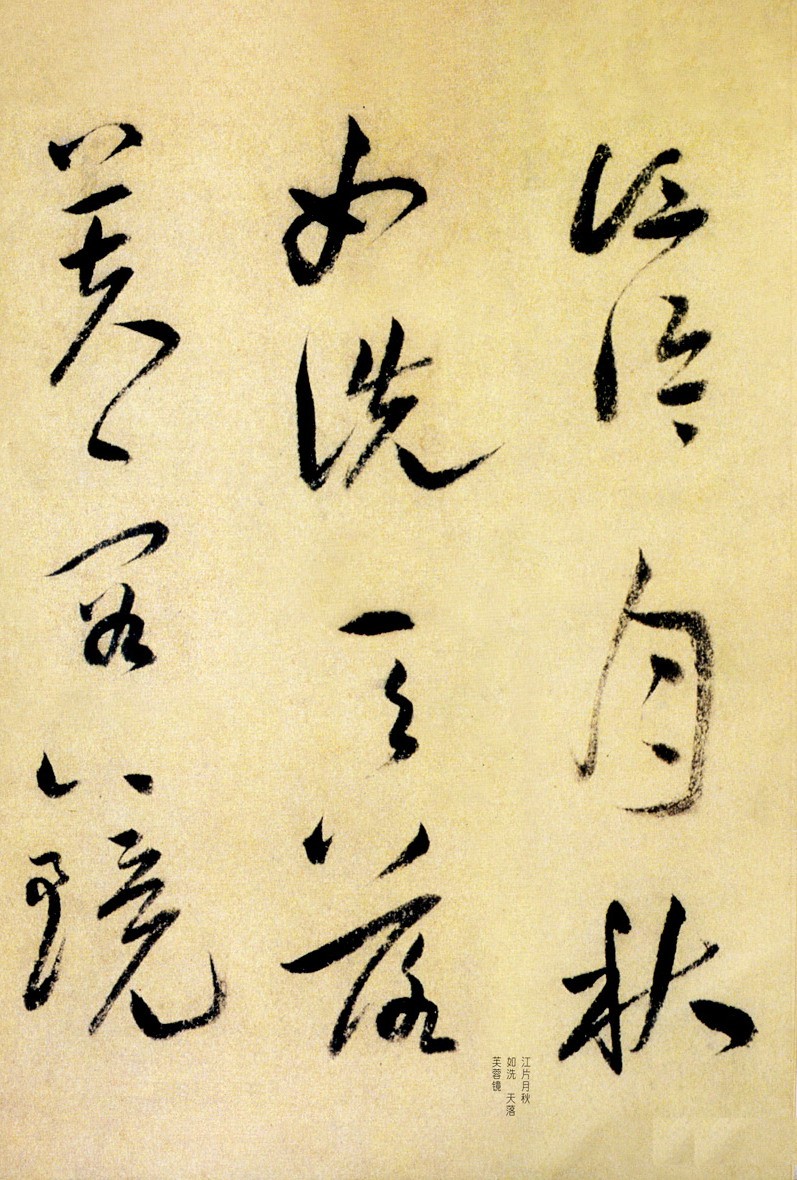 江月秋
如洗天落
芙蓉鏡
江片月秋
如洗 天落
芙蓉镜